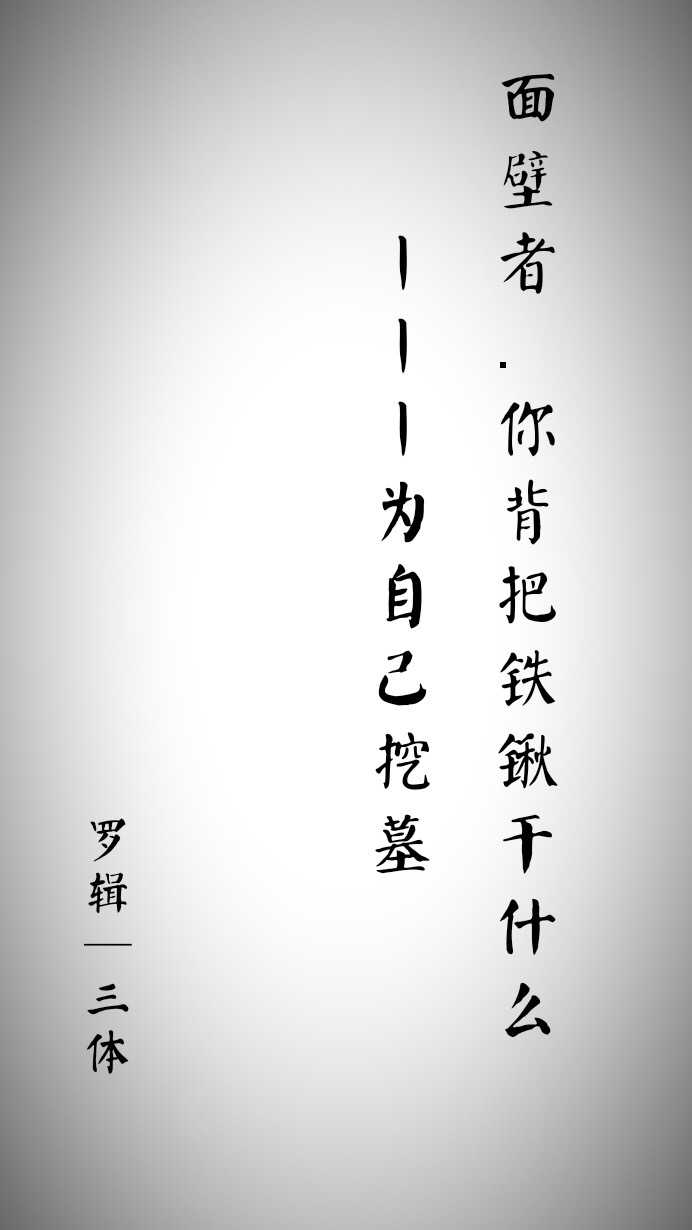 面壁者.你背把铁锹干什么
———为自己挖墓
罗辑|三体